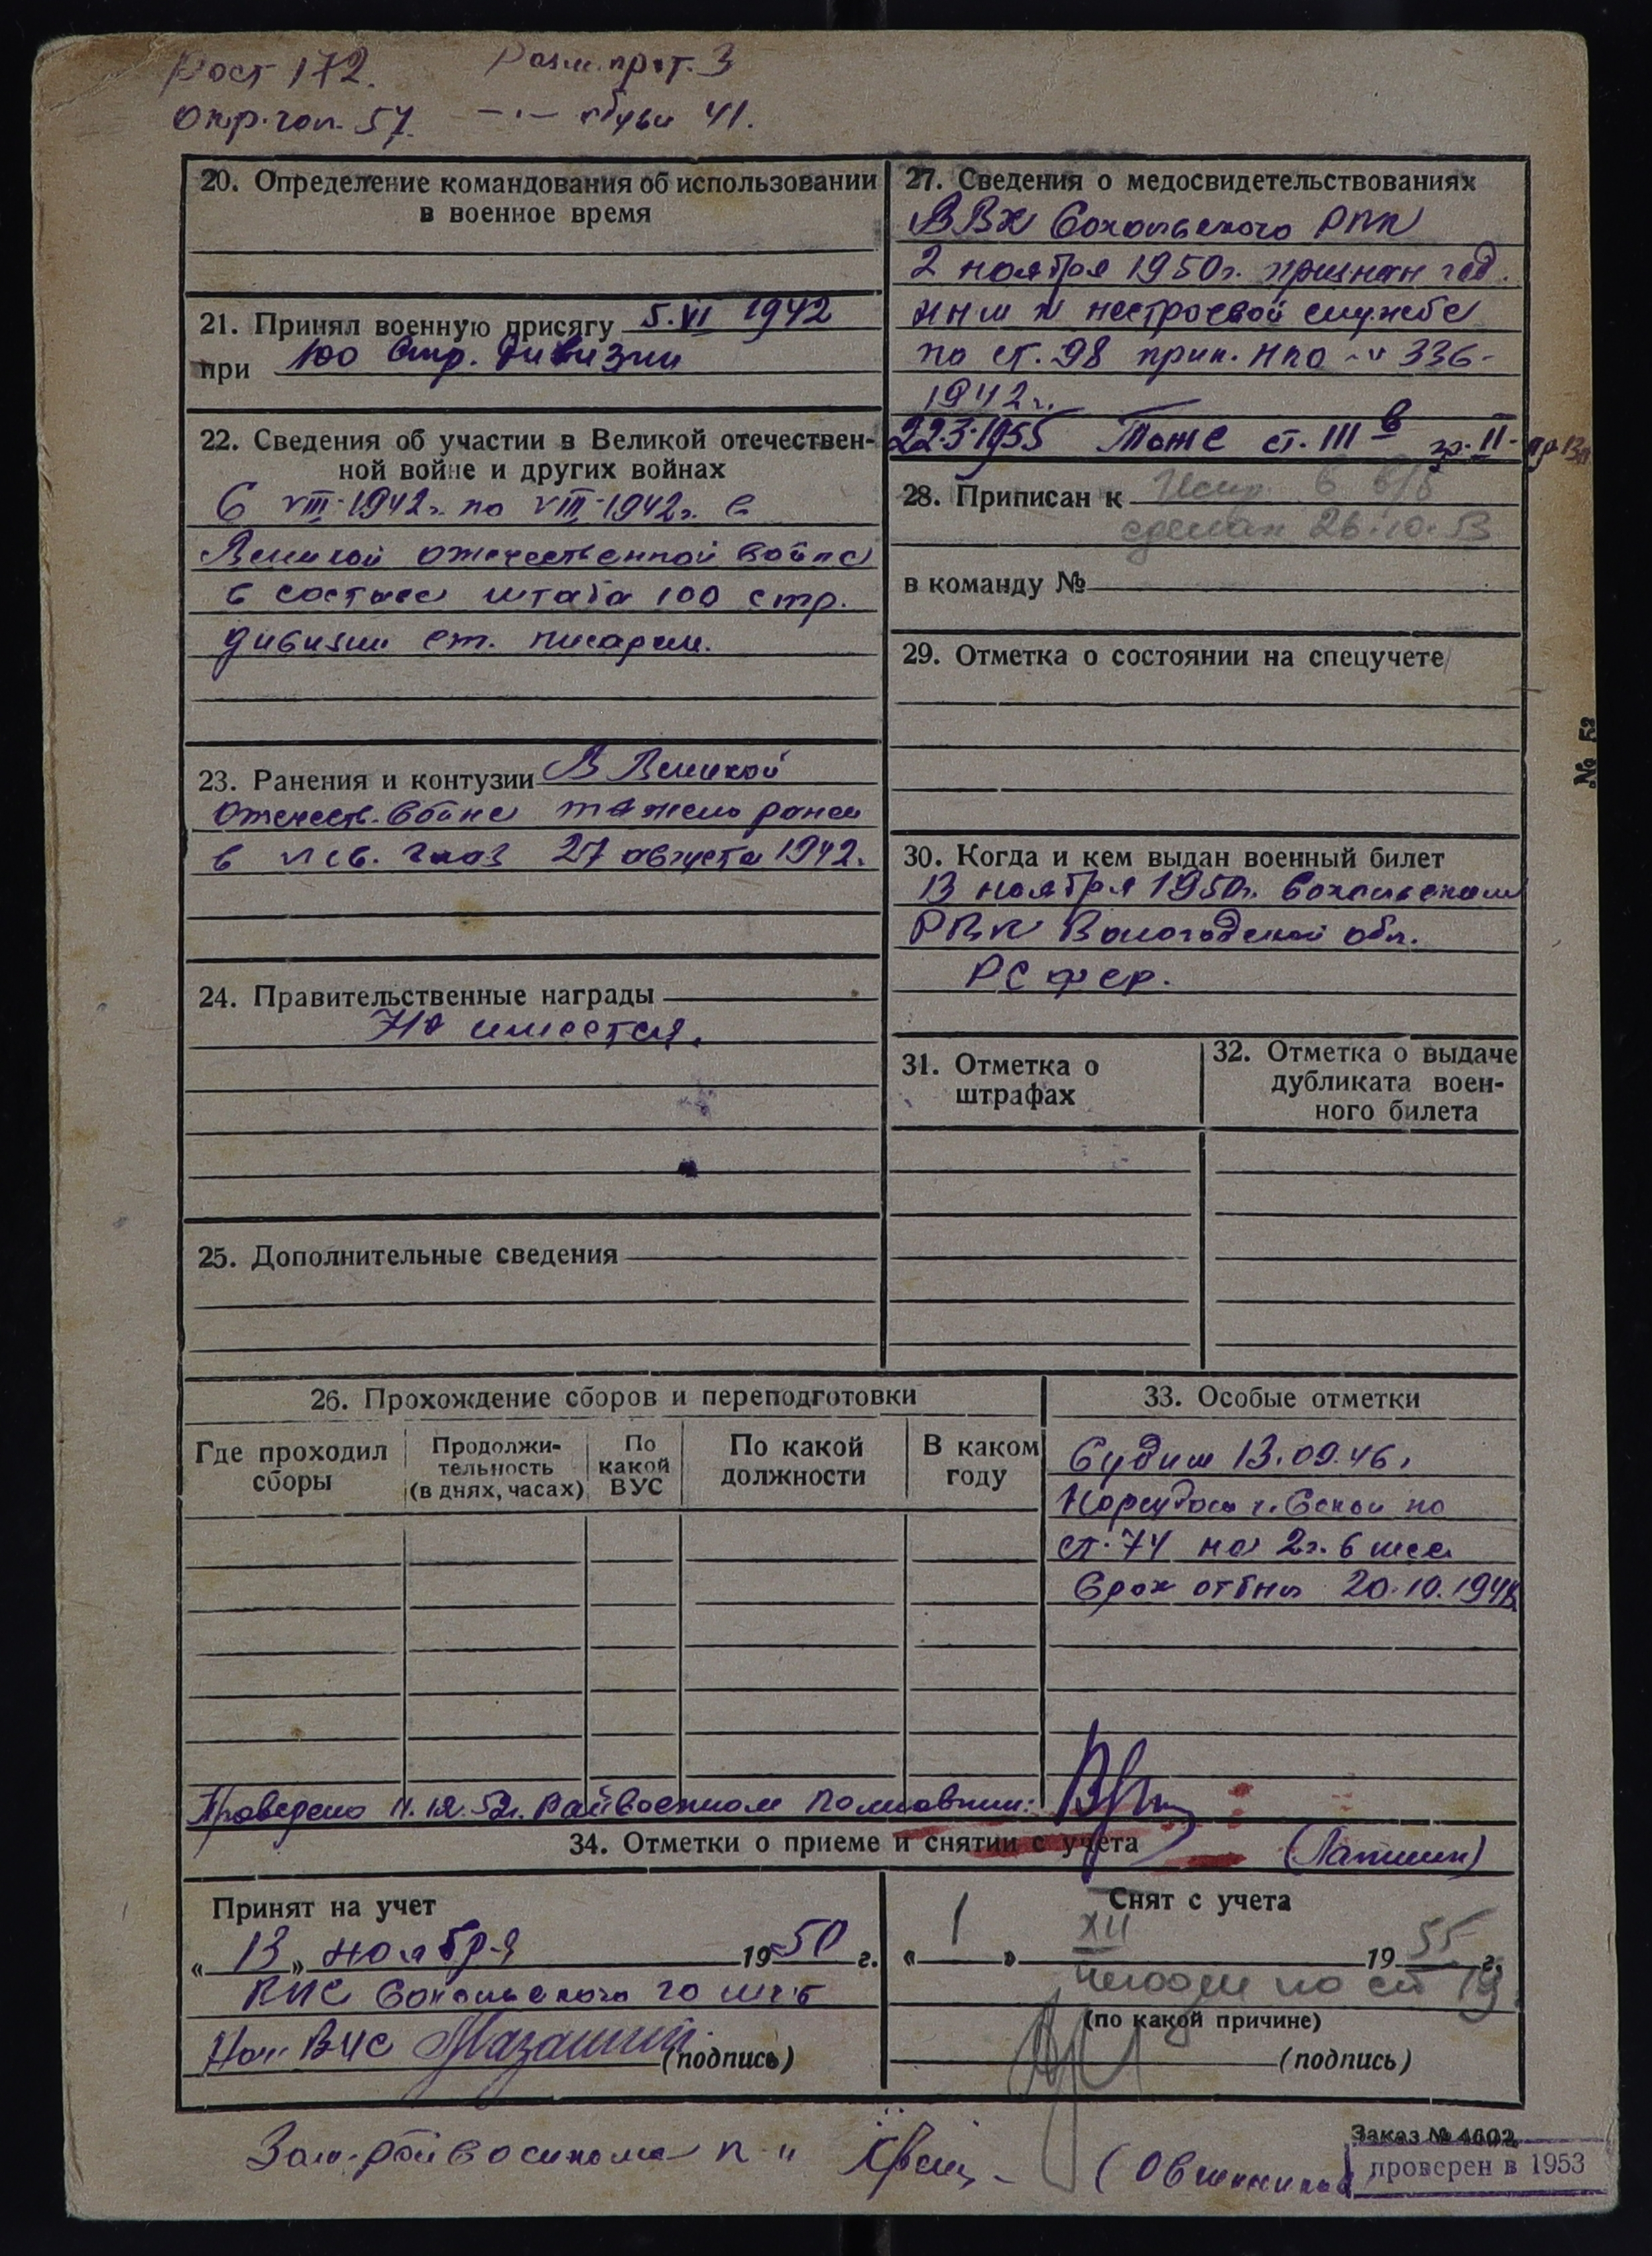 Рост 172. Разм. прот. 3
Окр. гол. 57. —·— обуви 41.
20. Определение командования об использовании
в военное время
21. Принял военную присягу 5.VI 1942
при 100 Стр. дивизии
22. Сведения об участии в Великой отечествен-
ной войне и других войнах
С VIII-1942г. по VIII-1942г. в
Великой отечественной войне
в составе штаба 100 стр.
дивизии ст. писарем.
23. Ранения и контузии В Великой
отечеств. войне тяжело ранен
в лев. глаз 27 августа 1942.
24. Правительственные награды
Не имеется.
25. Дополнительные сведения
27. Сведения о медосвидетельствованиях
ВВК Сокольского РВК
2 ноября 1950г. признан год.
ным к нестроевой службе
по ст. 98 прик. НКО -"- 336-
1942г.
22.3.1955 Тоже ст. III в гр. II-
28. Приписан к
сделан 26.10.53
в команду №
29. Отметка о состоянии на спецучете
30. Когда и кем выдан военный билет
13 ноября 1950г. Сокольским
РВК Вологодской обл.
РСФСР.
31. Отметка о
штрафах
32. Отметка о выдаче
дубликата воен-
ного билета
№ 52
26. Прохождение сборов и переподготовки
Где проходил
сборы
Продолжи-
тельность
(в днях, часах)
По
какой
ВУС
По какой
должности
В каком
году
33. Особые отметки
Судим 13.09.46.
Нарсудом г. Сокол по
ст. 74 на 2г. 6 мес
Срок отбыл 20.10.1948
Проверено 11.12.52г. Райвоенком Полковник:
(Лапшин)
34. Отметки о приеме и снятии с учета
Принят на учет
„13" ноября 1950 г.
ВУС Сокольского
Нач ВУС
(подпись)
Снят с учета
„1" XII 1955 г.
негоден по ст 19
(по какой причине)
(подпись)
Зам. райвоенкома п-к
Заказ № 4602
проверен в 1953